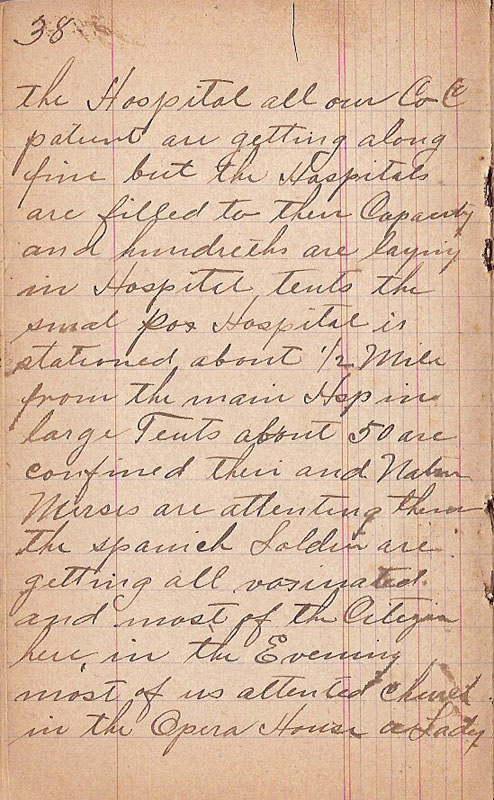 38
the Hospital all our Co C
patient are getting along
fine but the Hospitals
are filled to their Capacity
and hundreths are laying
in Hospital tents the
smal pox Hospital is
stationed about 1/2 Mile
from the main Hsp in
large Tents about 50 are
confined their and
Nurses are attenting them
the spanich Soldier are
getting all vaxinated.
and most of the Citizen
here, in the Evening
most of us attented church
in the Opera House a Lady